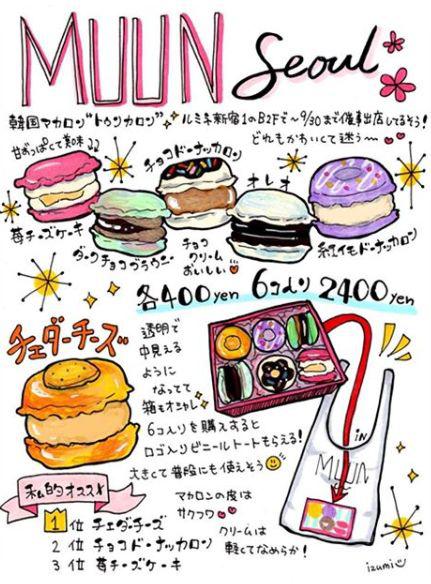 MUUN Seoul
韓国マカロン"トゥンカロン" ルミネ新宿1のB2Fで〜9/30まで催事出店してるそう!
どれもかわいくて迷う〜
甘ずっぱくて美味♪♪
チョコドーナッカロン
オレオ
苺チーズケーキ
ダークチョコブラウニー
チョコ
クリーム
おいしい♡
紅イモドーナッカロン
各400yen 6コ入り 2400yen
チェダーチーズ
透明で
中見える
ように
なってて
箱もオシャレ
6コ入りを購入すると
ロゴ入りビニールトートもらえる!
大きくて普段にも使えそう
マカロンの皮は
サクフワ♡
クリームは
軽くてなめらか!
IN
MUUN
私的オススメ
1位 チェダーチーズ
2位 チョコドーナッカロン
3位 苺チーズケーキ
izumi